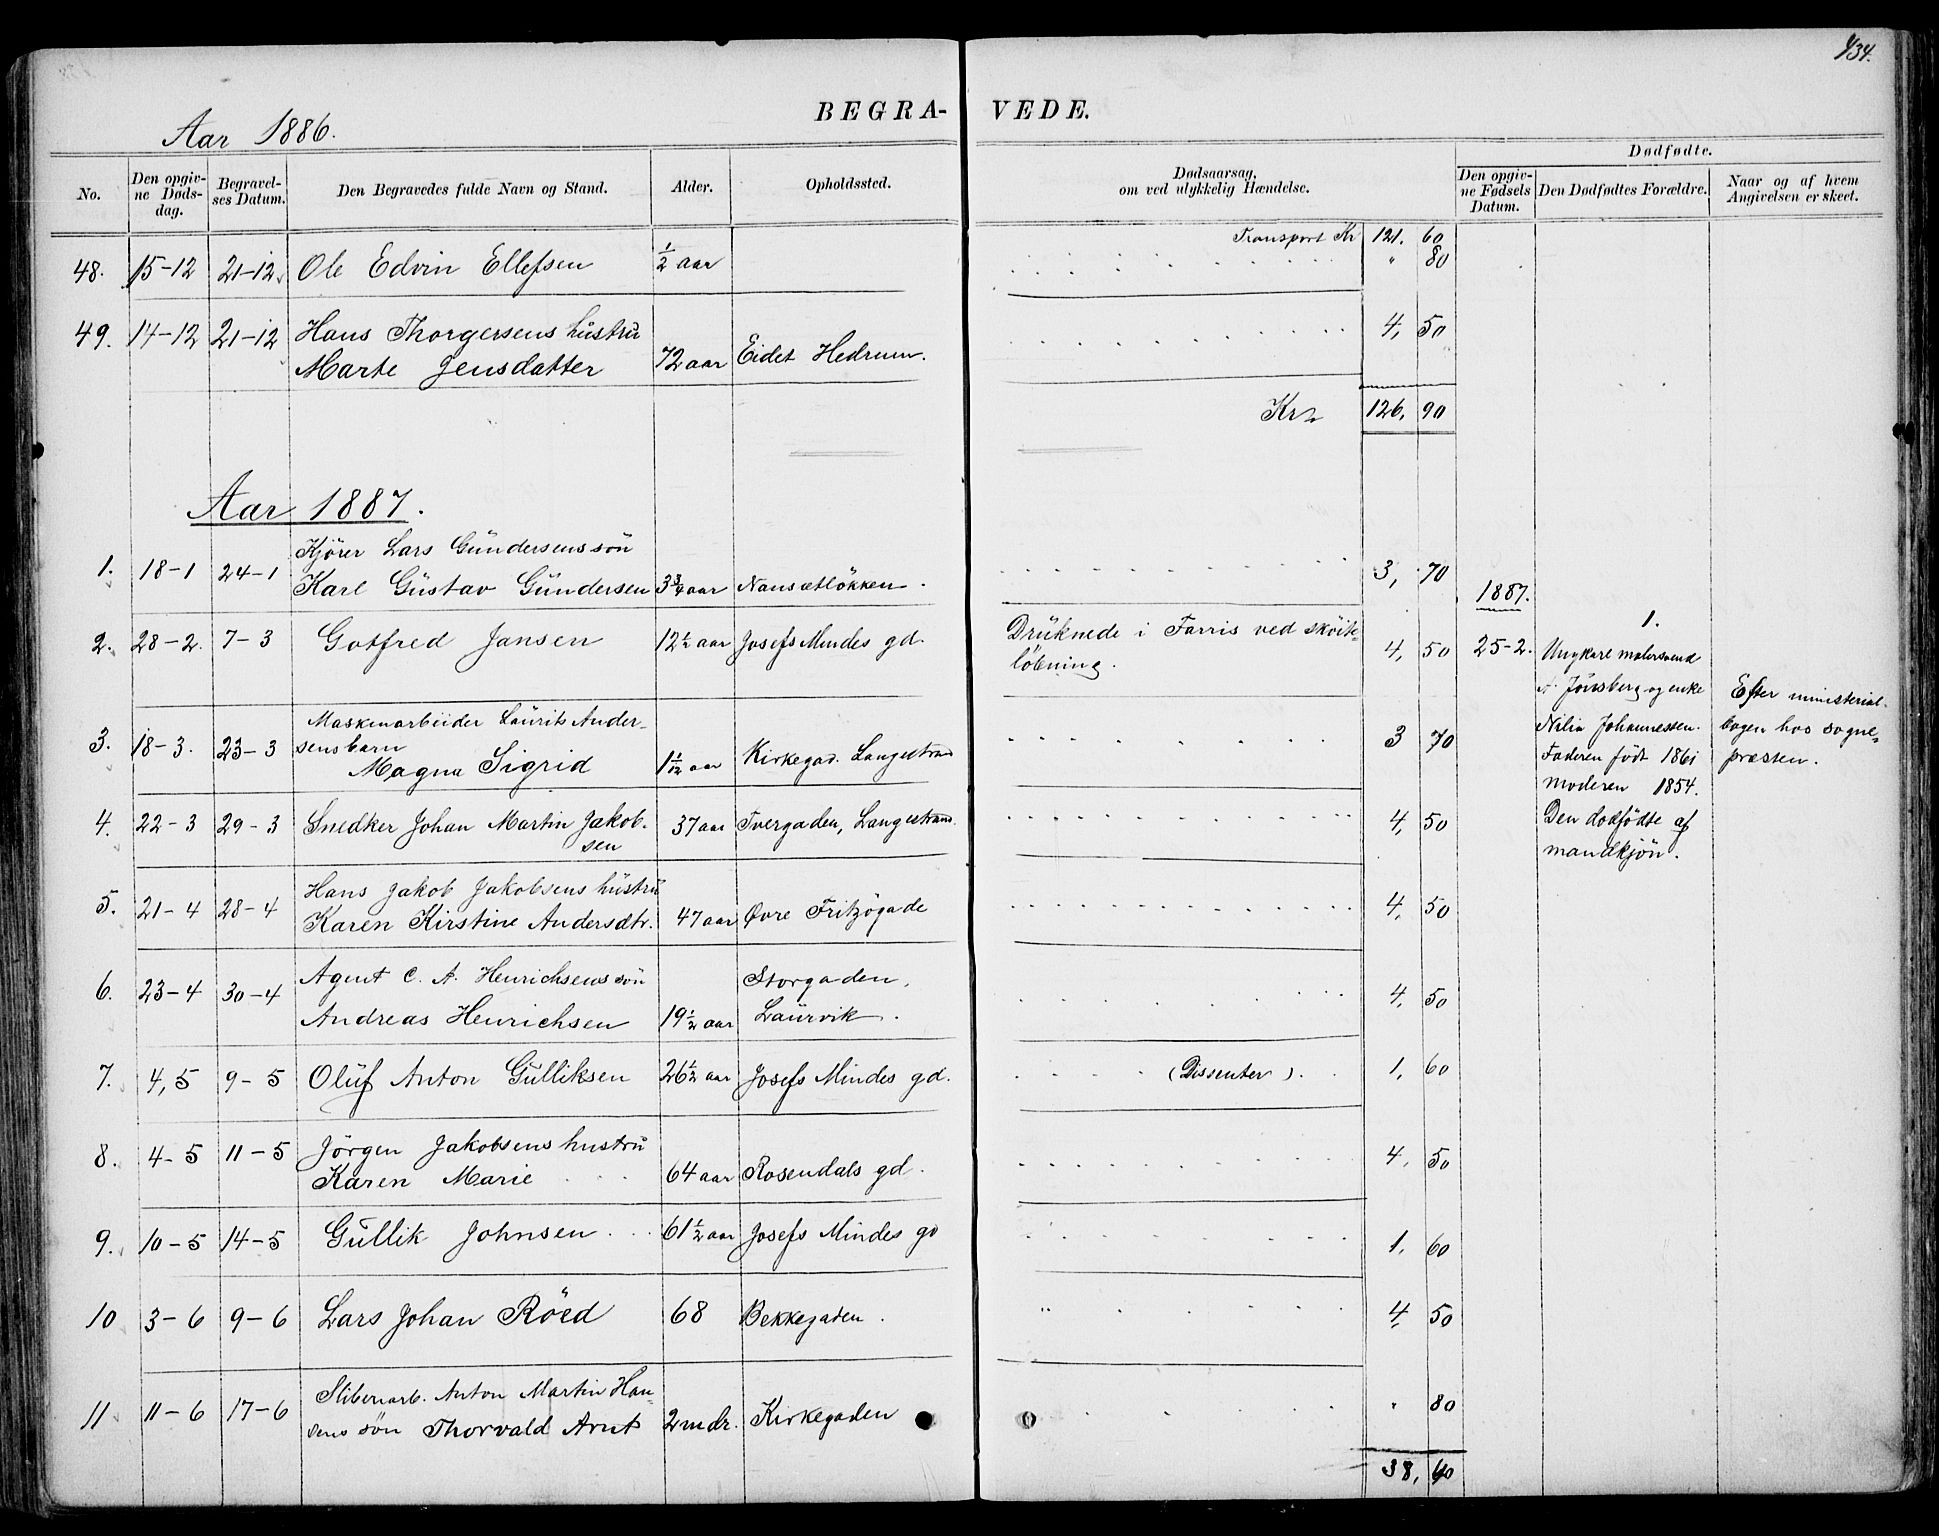 434.
BEGRA- VEDE.
Aar 1886.
No. Den opgivne Dødsdag. Begravelses Datum. Den Begravedes fulde Navn og Stand. Alder. Opholdssted. Dødsaarsag, om ved ulykkelig Hændelse. Dødfødte. Den opgivne Fødsels Datum. Den Dødfødtes Forældre. Naar og af hvem Angivelsen er skeet.
Transport Kr 121. 60
48. 15-12 21-12 Ole Edvin Ellefsen ½ aar " 80
49. 14-12 21-12 Hans Thorgersens hustru
Marte Jensdatter 72 aar Eidet Hedrum. 4, 50
Kr 126, 90
Aar 1887.
1. 18-1 24-1 Kjörer Lars Gundersens sön
Karl Gustav Gundersen 3¾ aar Nansetløkken. 3, 70
2. 28-2. 7-3 Gotfred Jansen 12½ aar Josefs Mindes gd. Druknede i Farris ved sköite-
löbning. 4, 50
3. 18-3. 23-3 Maskenarbeider Laurits Ander-
sens barn
Magna Sigrid 1 1/12 aar Kirkegad. Langestrand 3 70
4. 22-3 29-3 Snedker Johan Martin Jakob-
sen 37 aar Tvergaden, Langestrand 4, 50
5. 21-4 28-4 Hans Jakob Jakobsens hustru
Karen Kirstine Andersdtr. 47 aar Øvre Fritzögade 4, 50
6. 23-4 30-4 Agent C. A. Henrichsens sön
Andreas Henrichsen 19½ aar Storgaden,
Laurvik. 4, 50
7. 4,5 9-5 Oluf Anton Gulliksen 26½ aar Josefs Mindes gd. (Dissenter). 1, 60
8. 4-5 11-5 Jörgen Jakobsens hustru
Karen Marie 64 aar Rosendals gd. 4, 50
9. 10-5 14-5 Gullik Johnsen 61½ aar Josefs Mindes gd 1, 60
10 3-6 9-6 Lars Johan Röed 68 Bekkegaden. " 4, 50
11 11-6 17-6 Sliberiarb. Anton Martin Han-
sens sön Thorvald Arnt 2 mdr. Kirkegaden " 80
38, 40
1887.
1.
25-2. Ungkarl malersvend
A. Jönsberg og enke
Nilia Johannessen.
Faderen födt 1861
moderen 1854.
Den dodfödte af
mandkjön.
Efter ministerial-
bogen hos sogne-
præsten.